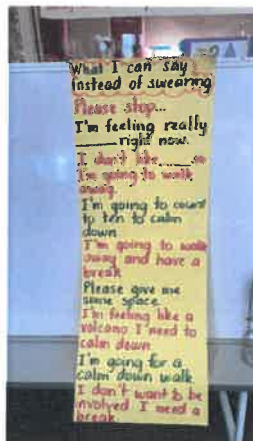 What I can say
instead of swearing
Please stop...
I'm feeling really
_____ right now.
I don't like ____ so
I'm going to walk
away.
I'm going to count
to ten to calm
down
I'm going to walk
away and have a
break
Please give me
some space.
I'm feeling like a
volcano I need to
calm down.
I'm going for a
calm down walk.
I don't want to be
involved I need a
break.